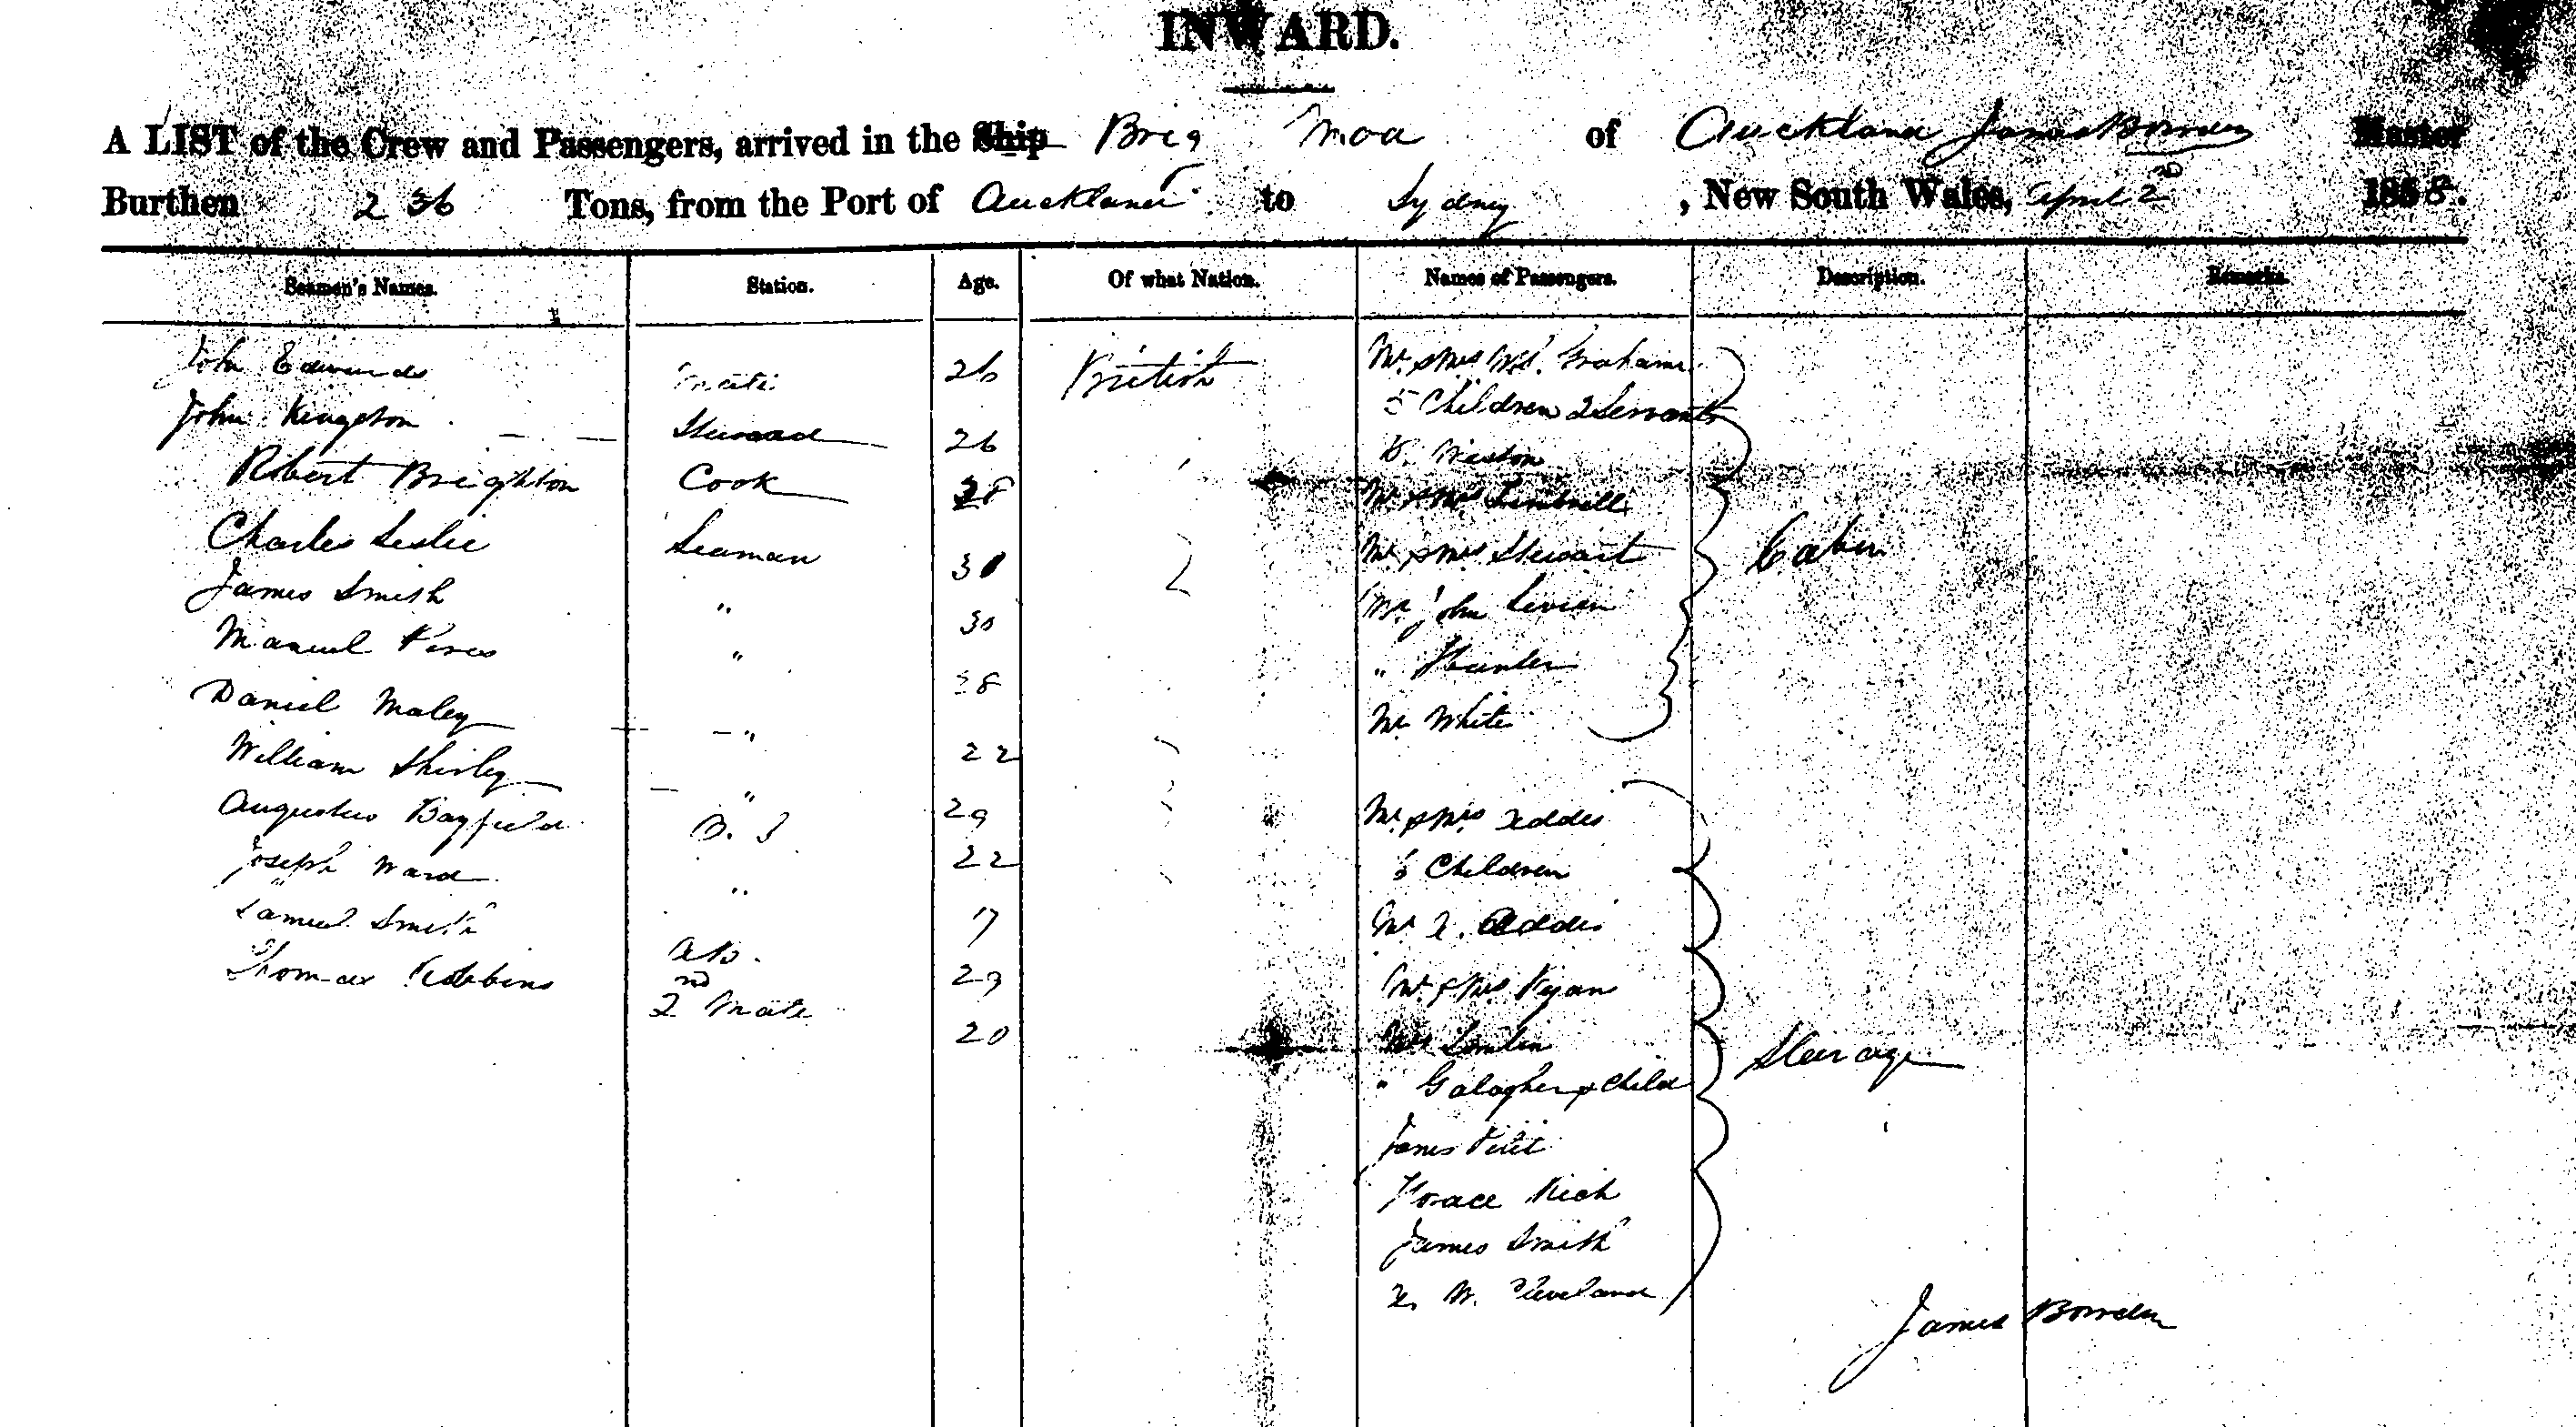 INWARD.
A LIST of the Crew and Passengers, arrived in the Ship Brig Moa of Auckland James Bowden Master
Burthen 236 Tons, from the Port of Auckland to Sydney, New South Wales, April 2nd 1858.
Seamen's Names. Station. Age. Of what Nation. Names of Passengers. Description. Remarks.
John Edwards Mate 26 British Mr & Mrs Graham
John Kingston Steward 26 5 Children 2 Servants
Robert Brighton Cook 28
Charles Leslie Seaman 30 Mr & Mrs Stewart Cabin
James Smith " 30 Mr John
Manuel " 38 " Hunter
Daniel Maley " 22 Mr White
William Shirley " 29 Mr & Mrs
Augustus Bayfield 22 Children
Joseph Ward " 17 Mr Addis
Samuel Smith AB. 29 Mr & Mrs Ryan
Thomas Robbins 2nd Mate 20
" Galagher & Child Steerage
James
Horace Rich
James Smith
W. Cleveland
James Bowden